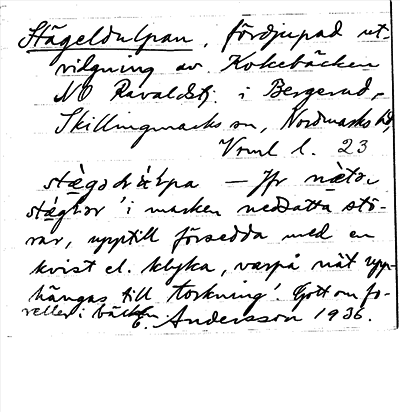 Stägeldulpan, fördjupad ut-
vidgning av Kokebäcken
NO Ravaldsbj. i Bergerud,
Skillingmarks sn, Nordmarks hd,
Vrml l. 23
— Jfr
'i marken nedsatta stö-
rar, upptill försedda med en
kvist el. klyka, varpå nät upp-
hängas till torkning'. Gott om fo-
reller i bäcken.
E. Andersson 1936.